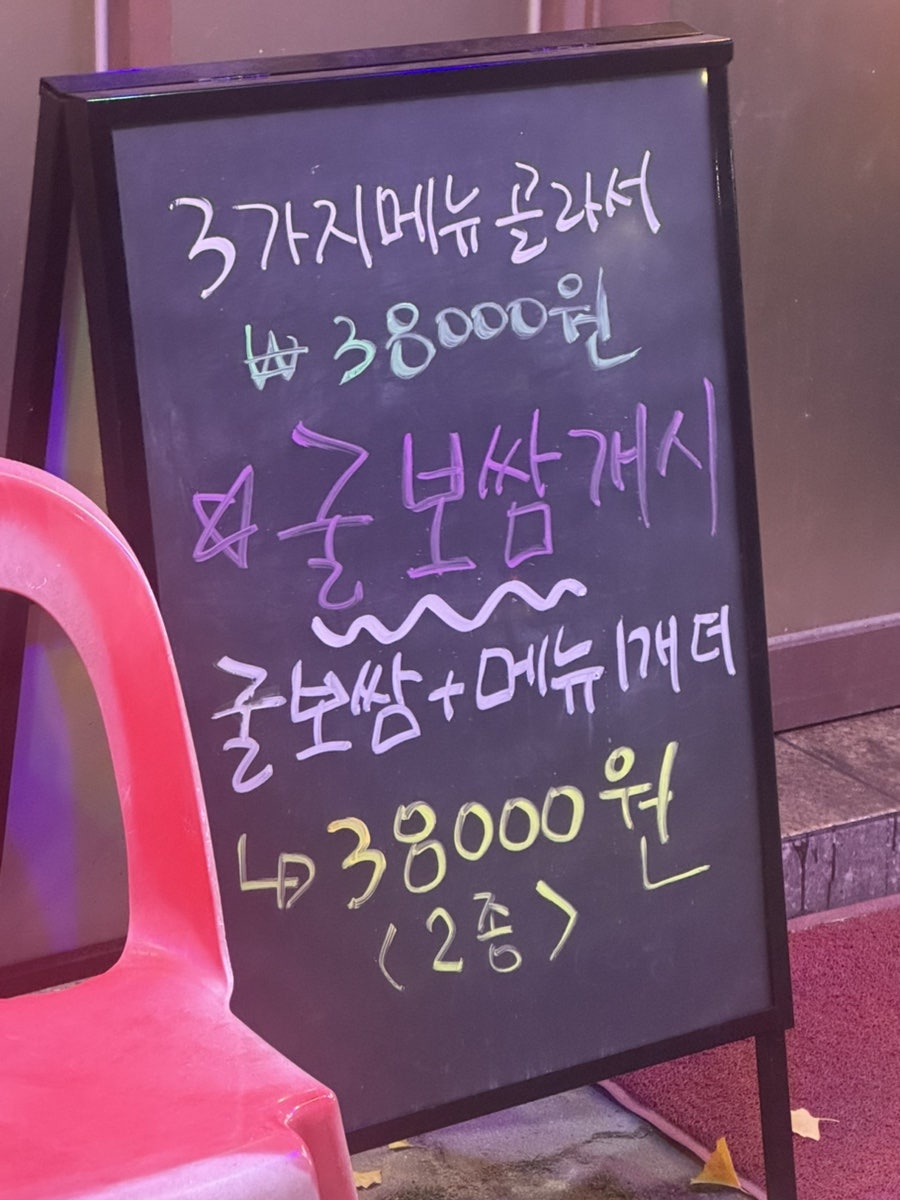 3가지메뉴 골라서
₩ 38000원
☆ 굴보쌈개시
굴보쌈+메뉴1개 더
↳ 38000원
<2종>